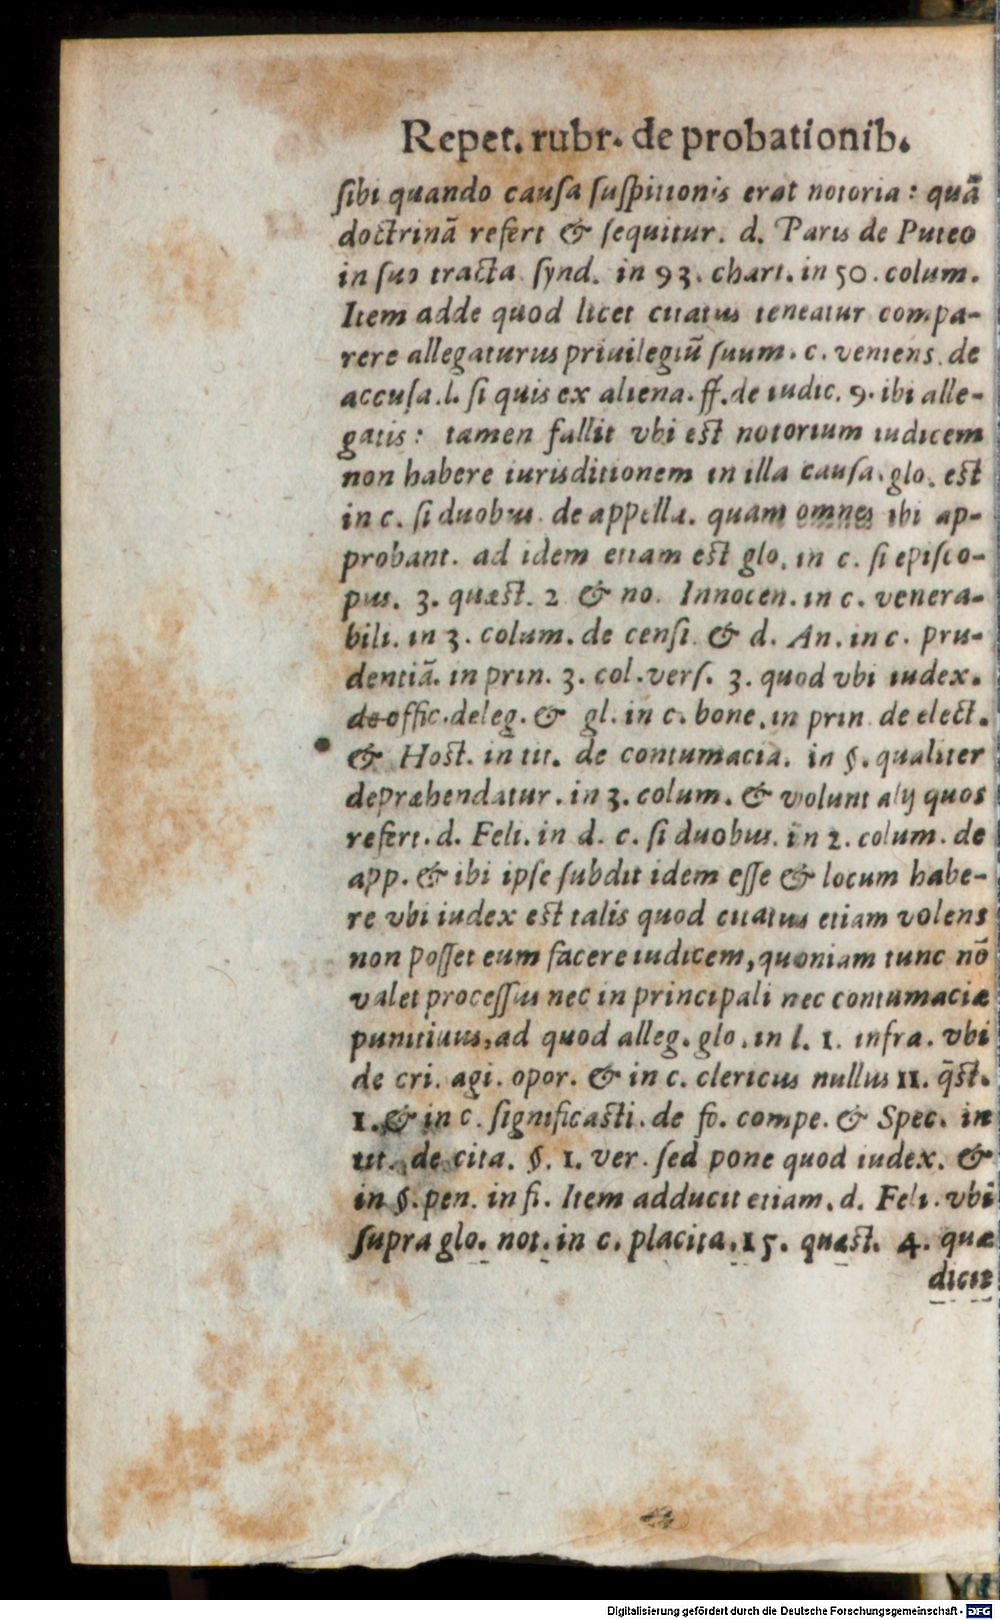 Repet. rubr. de probationib.
ſibi quando cauſa ſuſpitionis erat notoria: quã
doctrinã refert & ſequitur. d. Paris de Puteo
in ſuo tracta. ſynd. in 93. chart. in 50. colum.
Item adde quod licet citatus teneatur compa-
rere allegaturus priuilegiũ ſuum. c. veniens. de
accuſa. l. ſi quis ex aliena. ff. de iudic. 9. ibi alle-
gatis: tamen fallit vbi est notorium iudicem
non habere iurisditionem in illa cauſa. glo. est
in c. ſi duobus. de appella. quam omnes ibi ap-
probant. ad idem etiam est glo. in c. ſi epiſco-
pus. 3. quæst. 2 & no. Innocen. in c. venera-
bili. in 3. colum. de cenſi. & d. An. in c. pru-
dentiã. in prin. 3. col. verſ. 3. quod vbi iudex.
de offic. deleg. & gl. in c. bone. in prin. de elect.
& Host. in tit. de contumacia. in §. qualiter
depræhendatur. in 3. colum. & volunt alij quos
refert. d. Feli. in d. c. ſi duobus. in 2. colum. de
app. & ibi ipſe ſubdit idem eſſe & locum habe-
re vbi iudex est talis quod citatus etiam volens
non poſſet eum facere iudicem, quoniam tunc nõ
valet proceſſus nec in principali nec contumaciæ
punitiuus, ad quod alleg. glo. in l. 1. infra. vbi
de cri. agi. opor. & in c. clericus nullus 11. q̃st.
1. & in c. ſignificasti. de fo. compe. & Spec. in
tit. de cita. §. 1. ver. ſed pone quod iudex. &
in §. pen. in fi. Item adducit etiam. d. Feli. vbi
ſupra glo. not. in c. placita. 15. quæst. 4. quæ
dicit
Digitalisierung gefördert durch die Deutsche Forschungsgemeinschaft - DFG